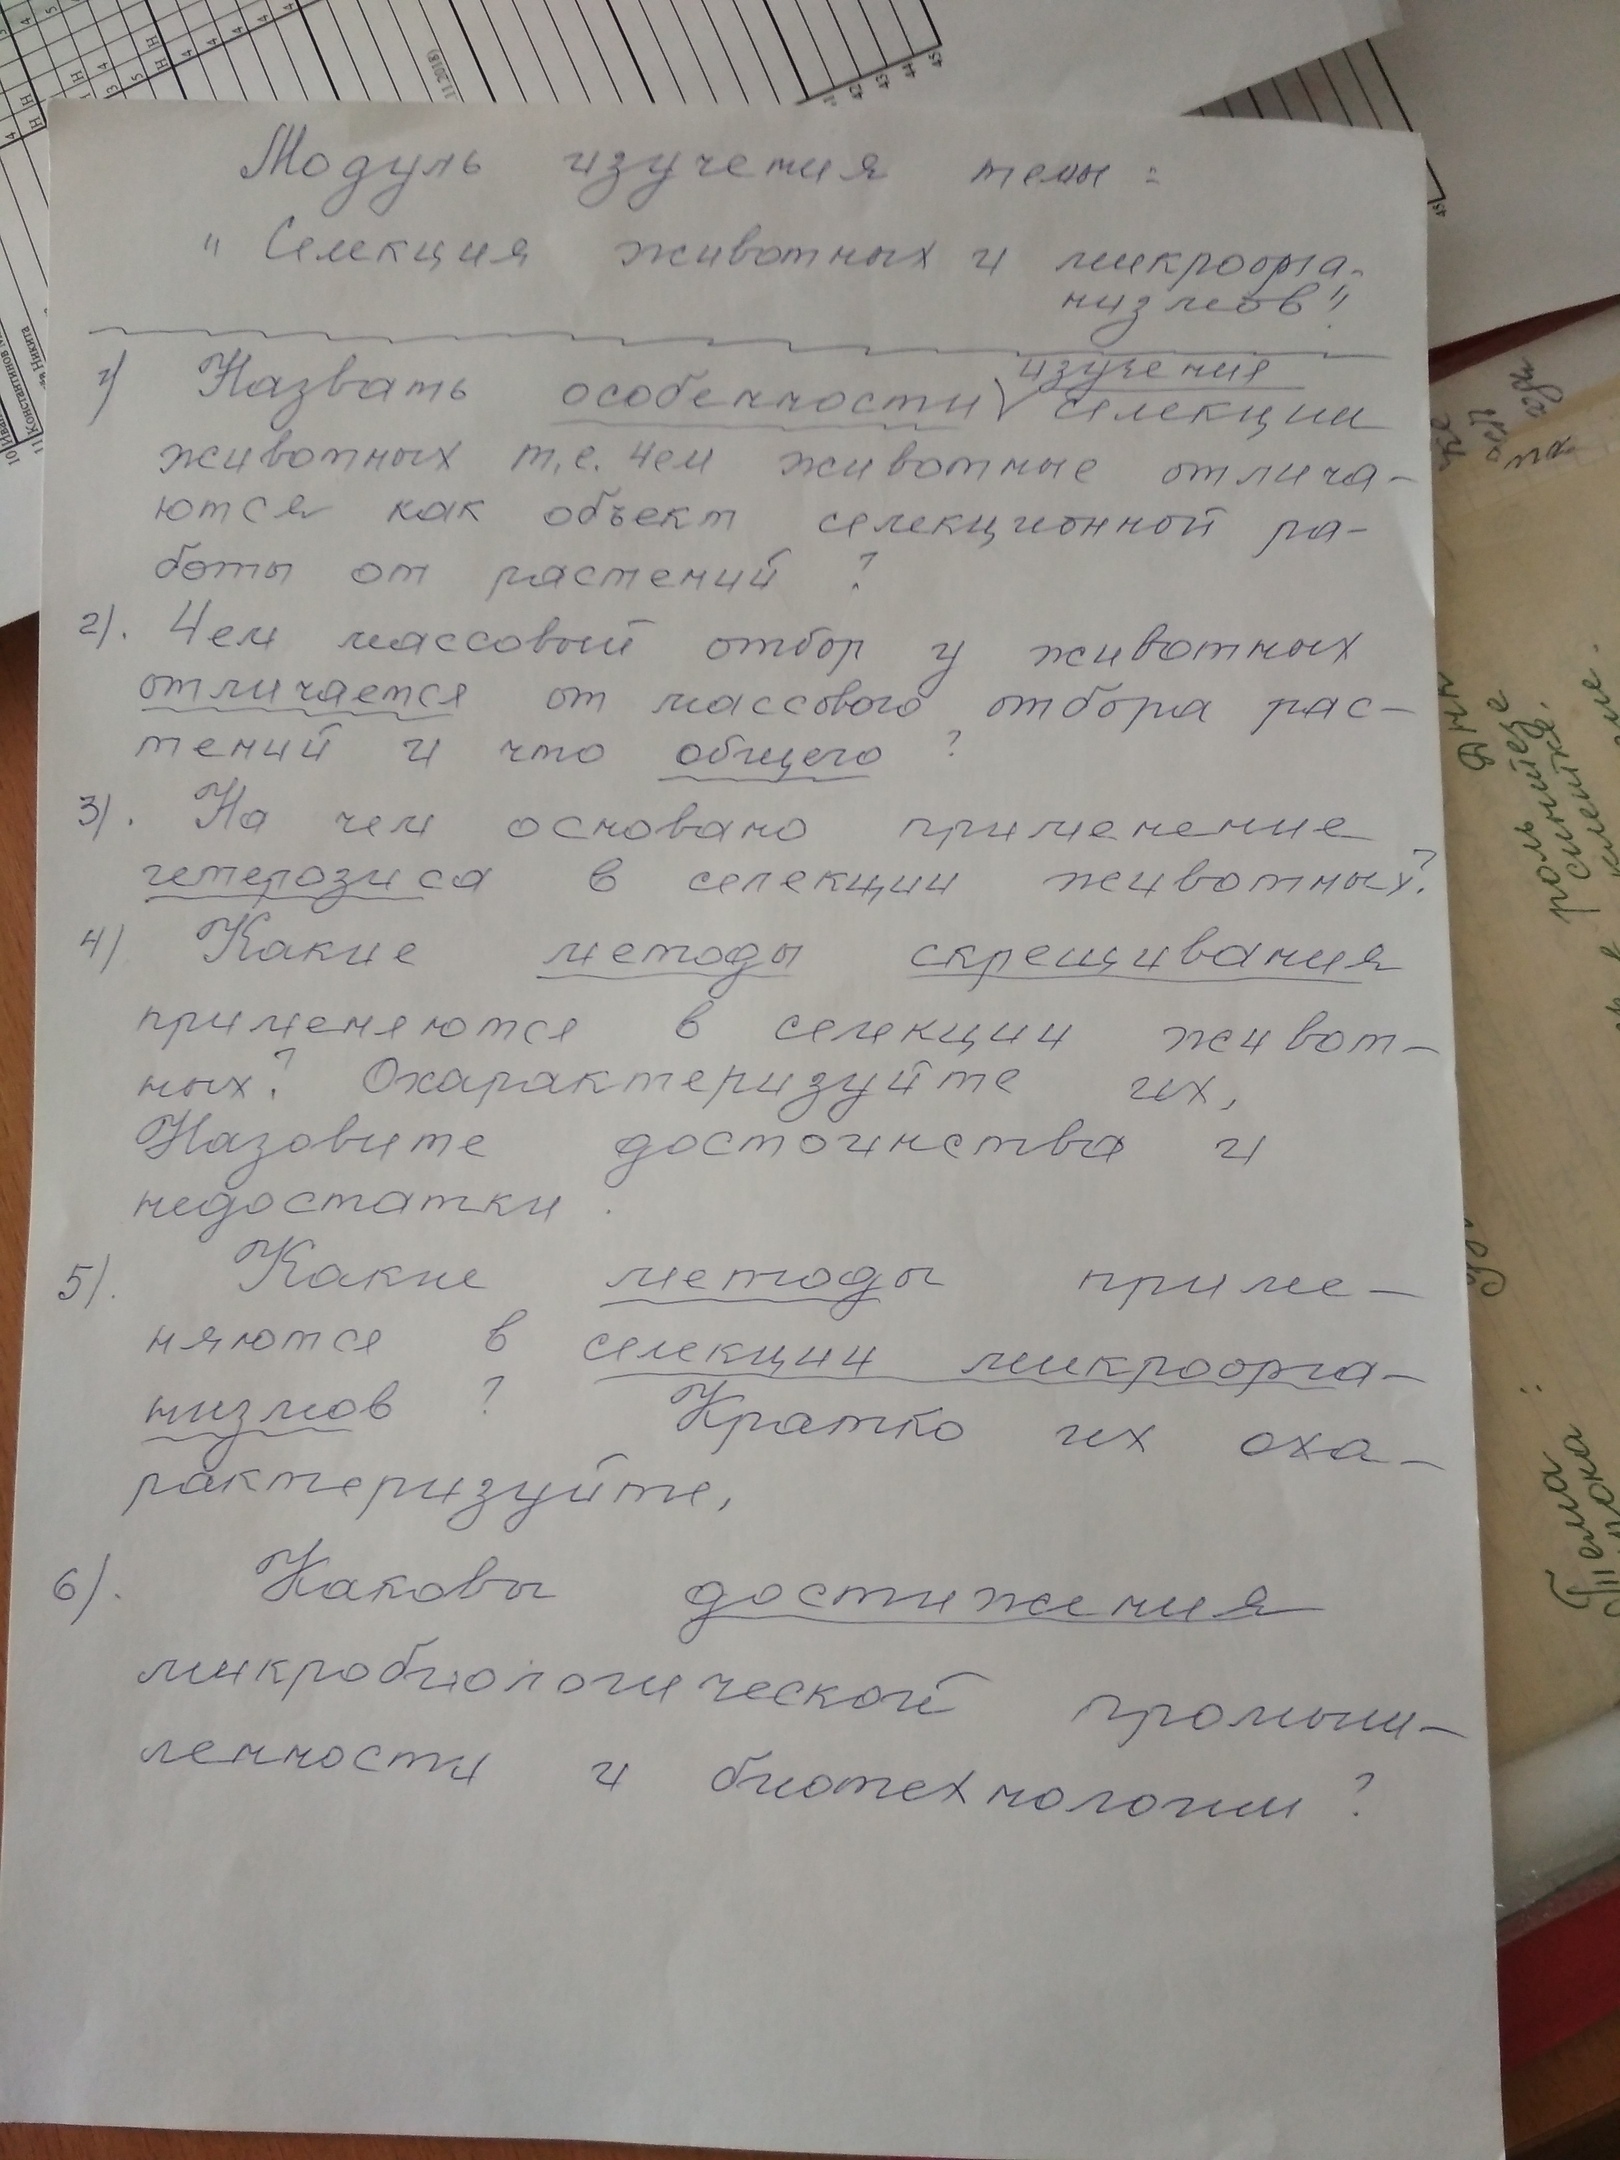 Модуль изучения темы:
"Селекция животных и микроорга-
низмов"
1) Назвать особенности изучения селекции
животных т.е. чем животные отлича-
ются как объект селекционной ра-
боты от растений?
2). Чем массовый отбор у животных
отличается от массового отбора рас-
тений и что общего?
3). На чем основано применение
гетерозиса в селекции животных?
4) Какие методы скрещивания
применяются в селекции живот-
ных? Охарактеризуйте их,
Назовите достоинства и
недостатки.
5). Какие методы приме-
няются в селекции микроорга-
низмов? Кратко их оха-
рактеризуйте,
6). Каковы достижения
микробиологической промыш-
ленности и биотехнологии?
11.2018)
42
43
44
45
45
11 Константинов
Никита
ДНК
роль
синтезе
клетке.
Тема
урока: